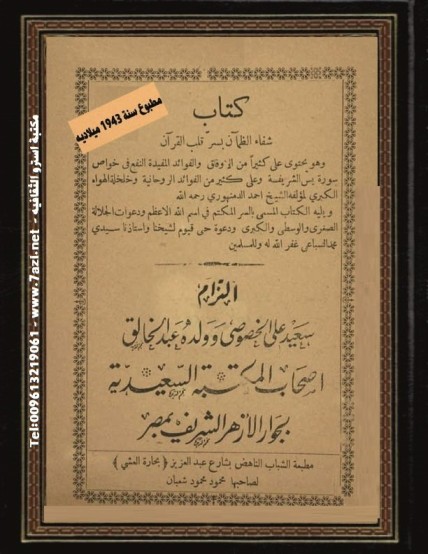 كتاب
مطبوع سنة 1943 ميلاديه
شفاء الظمآن بسر قلب القرآن
وهو يحتوى على كثيراً من الاوفاق والفوائد المفيدة النفع فى خواص
سورة يس الشريفة وعلى كثير من الفوائد الروحانية وخلخلة الهواء
الكبرى لمؤلفه الشيخ احمد الدمنهورى رحمه الله
و يليه الكتاب المسمى بالسر المكتم فى اسم الله الاعظم ودعوات الجلالة
الصغرى والوسطى والكبرى ودعوة حى قيوم لشيخنا واستاذنا سيدي
محمد السباعى غفر الله له وللمسلمين
الزام
سعيد على الخصوصى وولده عبد الخالق
اصحاب المكتبة السعيدية
بجوار الازهر الشريف بمصر
مطبعة الشباب الناهض بشارع عبد العزيز ( بحارة العشى )
لصاحبها محمود محمود شعبان
Tel:009613219061 - www.7azl.net - مكتبة استرو الثقافيه